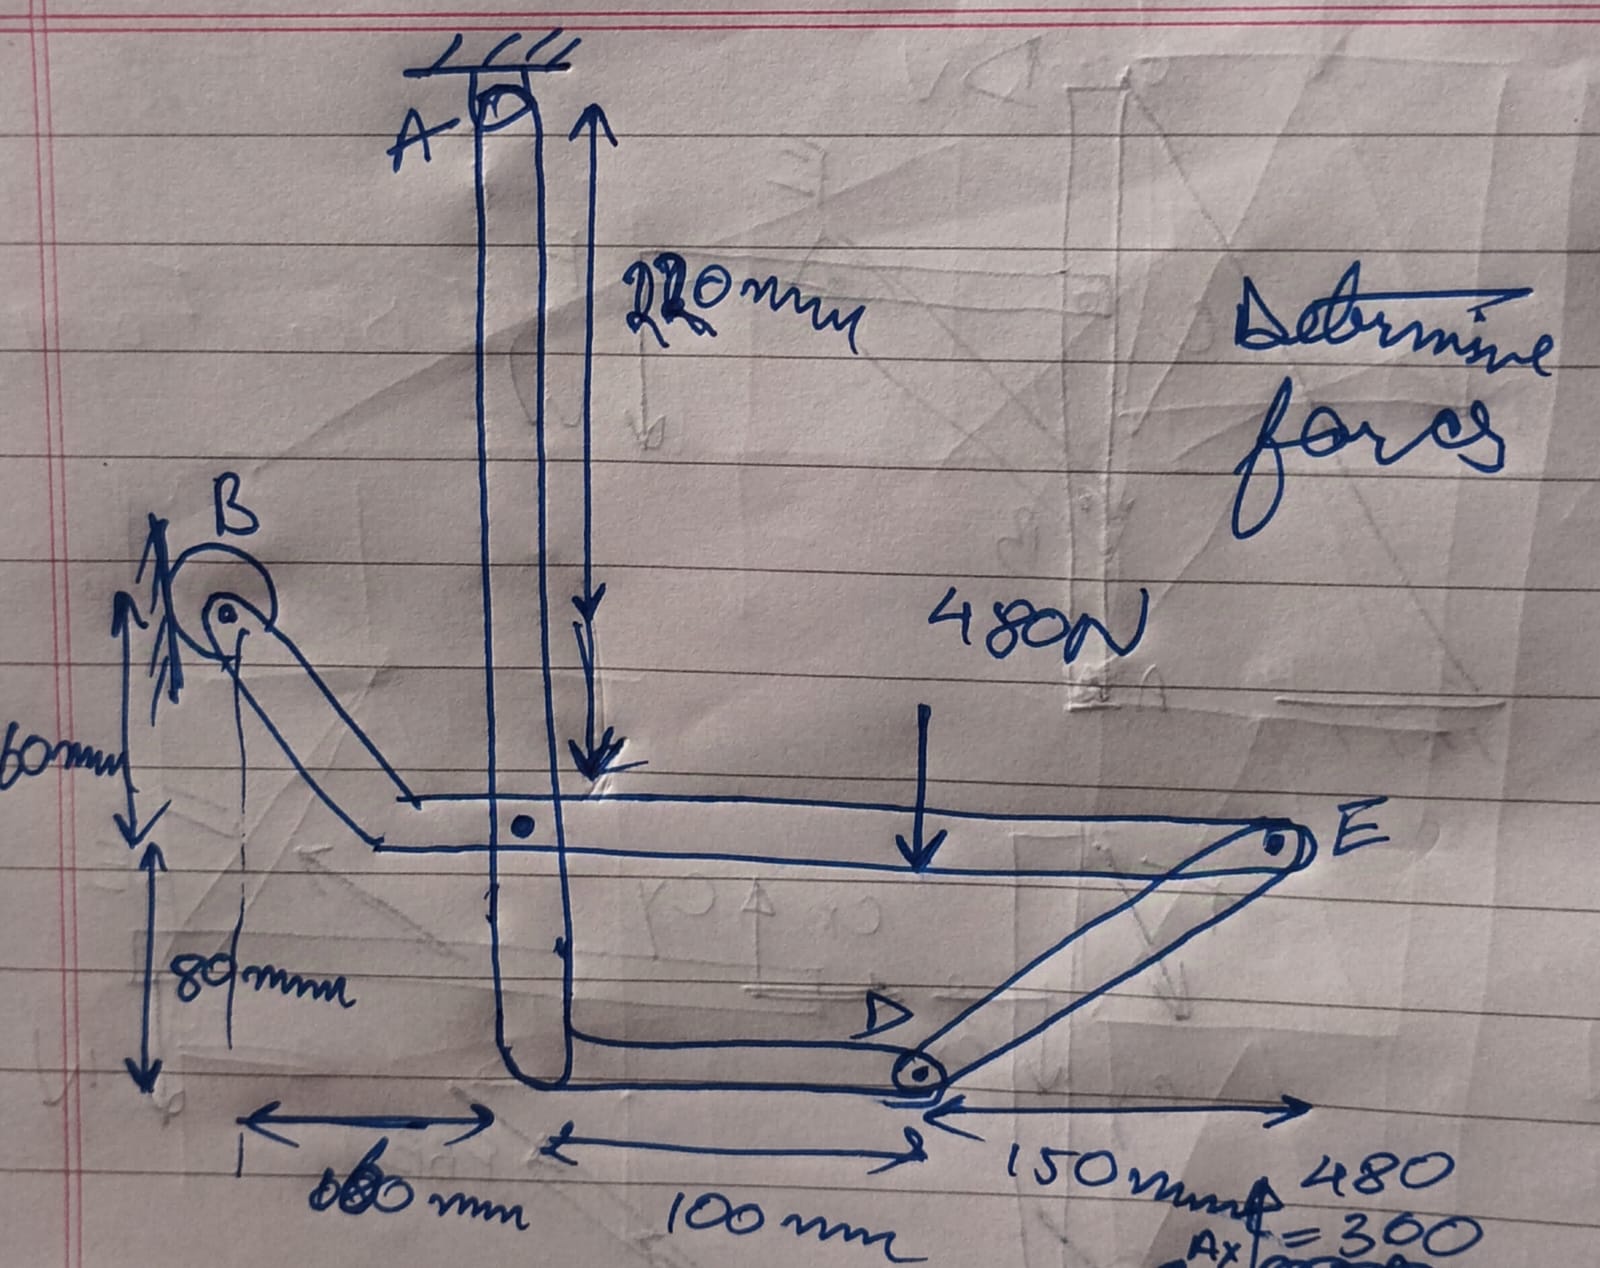 A
220mm
Determine
forces
B
480N
60mm
E
80mm
D
60mm
100mm
150mm
480
Ax = 300